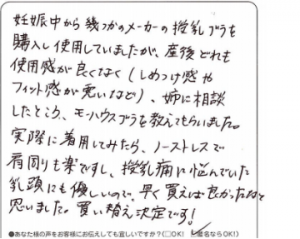 妊娠中から幾つかのメーカーの授乳ブラを
購入し使用していましたが、産後どれも
使用感が良くなく(しめつけ感や
フィット感が悪いなど)、姉に相談
したところ、モーハウスブラを教えてもらいました。
実際に着用してみたら、ノーストレスで
肩周りも楽ですし、授乳痛に悩んでいた
乳頭にも優しいので、早く買えば良かったなと
思いました。買い替え決定です!
●あなた様の声をお客様にお伝えしても宜しいですか?(□OK! ✓匿名ならOK!)